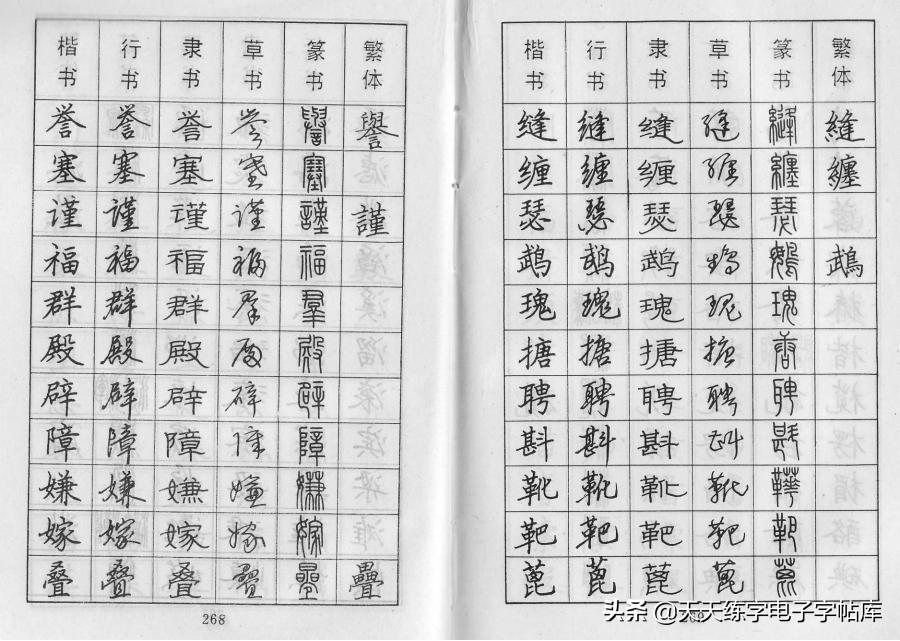 楷书 行书 隶书 草书 篆书 繁体
誉 誉 誉 誉 譽 譽
塞 塞 塞 塞 塞
谨 谨 谨 谨 謹 謹
福 福 福 福 福
群 群 群 群 羣
殿 殿 殿 殿 殿
辟 辟 辟 辟 辟
障 障 障 障 障
嫌 嫌 嫌 嫌 嫌
嫁 嫁 嫁 嫁 嫁
叠 叠 叠 叠 疊 疊
268
楷书 行书 隶书 草书 篆书 繁体
缝 缝 缝 缝 縫 縫
缠 缠 缠 缠 纏 纏
瑟 瑟 瑟 瑟 瑟
鹉 鹉 鹉 鹉 鵡
瑰 瑰 瑰 瑰 瑰
搪 搪 搪 搪
聘 聘 聘 聘 聘
斟 斟 斟 斟 斟
靴 靴 靴 靴
靶 靶 靶 靶 靶
蓖 蓖 蓖 蓖 蓖
头条 @天天练字电子字帖库